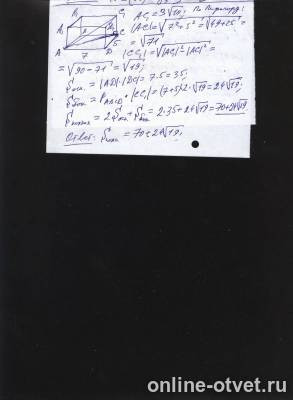 B₁ C₁ AC₁=3√10; По Пифагору:
A₁ |AC|=√7²+5²=√49+25=
=√74
A 7 D 5 |CC₁|=√|AC₁|²-|AC|²=
=√90-71=√19;
Sосн=|AD|·|DC|=7·5=35;
Sбок=PABCD·|CC₁|=(7+5)·2·√19=24√19;
Sполн=2Sосн+Sбок=2·35+24√19=70+24√19
Ответ: Sполн=70+24√19;
online-otvet.ru